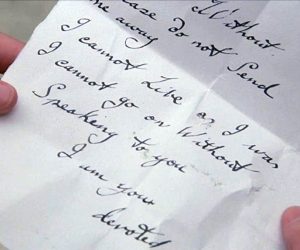 Without
me away
Please do not Send
I cannot Live as I was
I cannot go on Without
Speaking to you
I am your
devoted